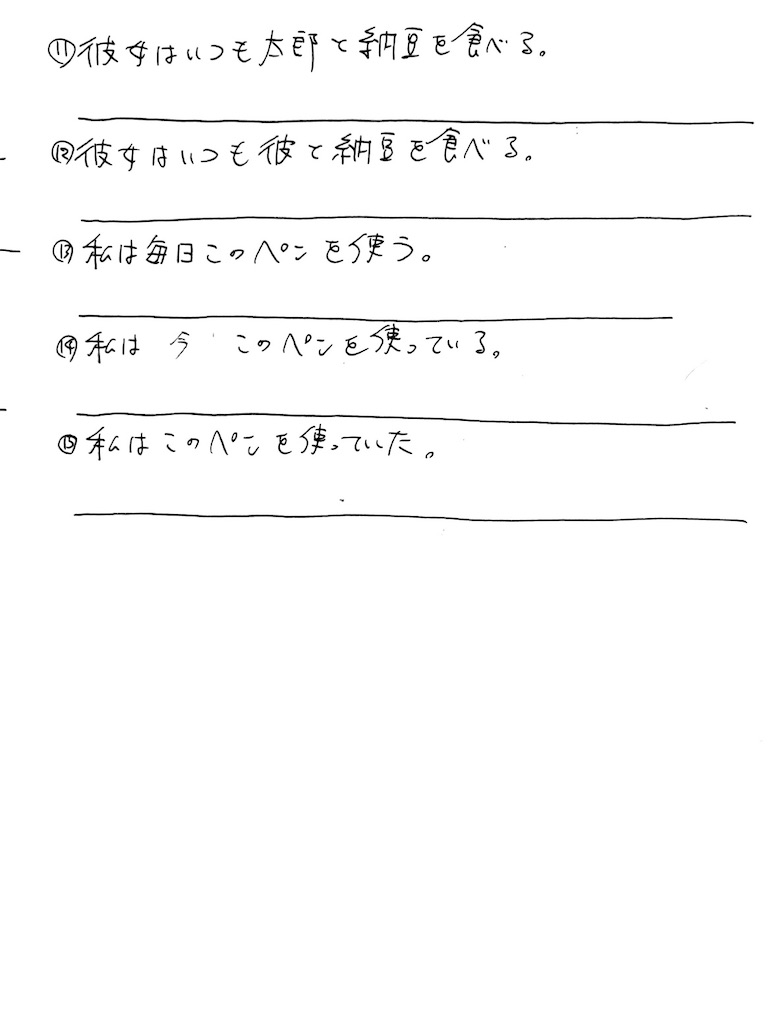 ⑪彼女はいつも太郎と納豆を食べる。
⑫彼女はいつも彼と納豆を食べる。
⑬私は毎日このペンを使う。
⑭私は 今 このペンを使っている。
⑮私はこのペンを使っていた。